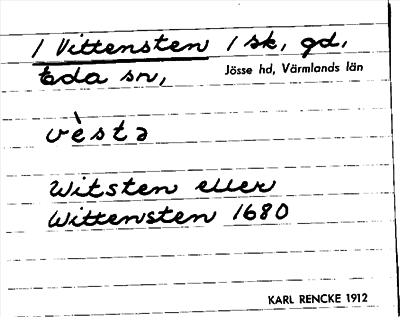 1 Vittensten 1 sk, gd,
Eda sn, Jösse hd, Värmlands län
vèsta
Witsten eller
Wittensten 1680
KARL RENCKE 1912